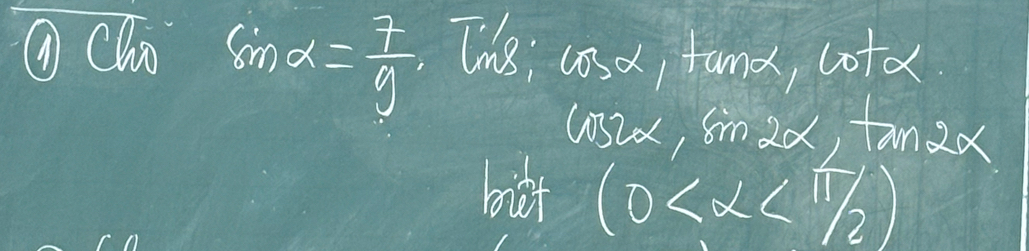 ① Cho sin α = 7/9. Tính: cosα, tanα, cotα.
cos2α, sin 2α, tan 2α
biết (0 < α < π/2)